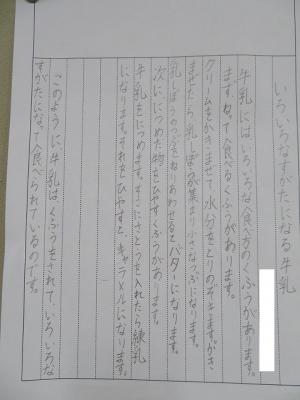 いろいろなすがたになる牛乳
牛乳にはいろいろな食べ方のくふうがあります。
まず、ねって食べるくふうがあります。
クリームをかきまぜて水分をとりのぞきます。かき
まぜたら、乳しぼうが集まり小さなつぶになります。
乳しぼうのつぶをねりあわせるとバターになります。
次に、につめた物をひやすくふうがあります。
牛乳をにつめます。そこにさとうを入れたら練乳
になります。それをひやすと、キャラメルになります。
このように、牛乳は、くふうをされて、いろいろな
すがたになって食べられているのです。